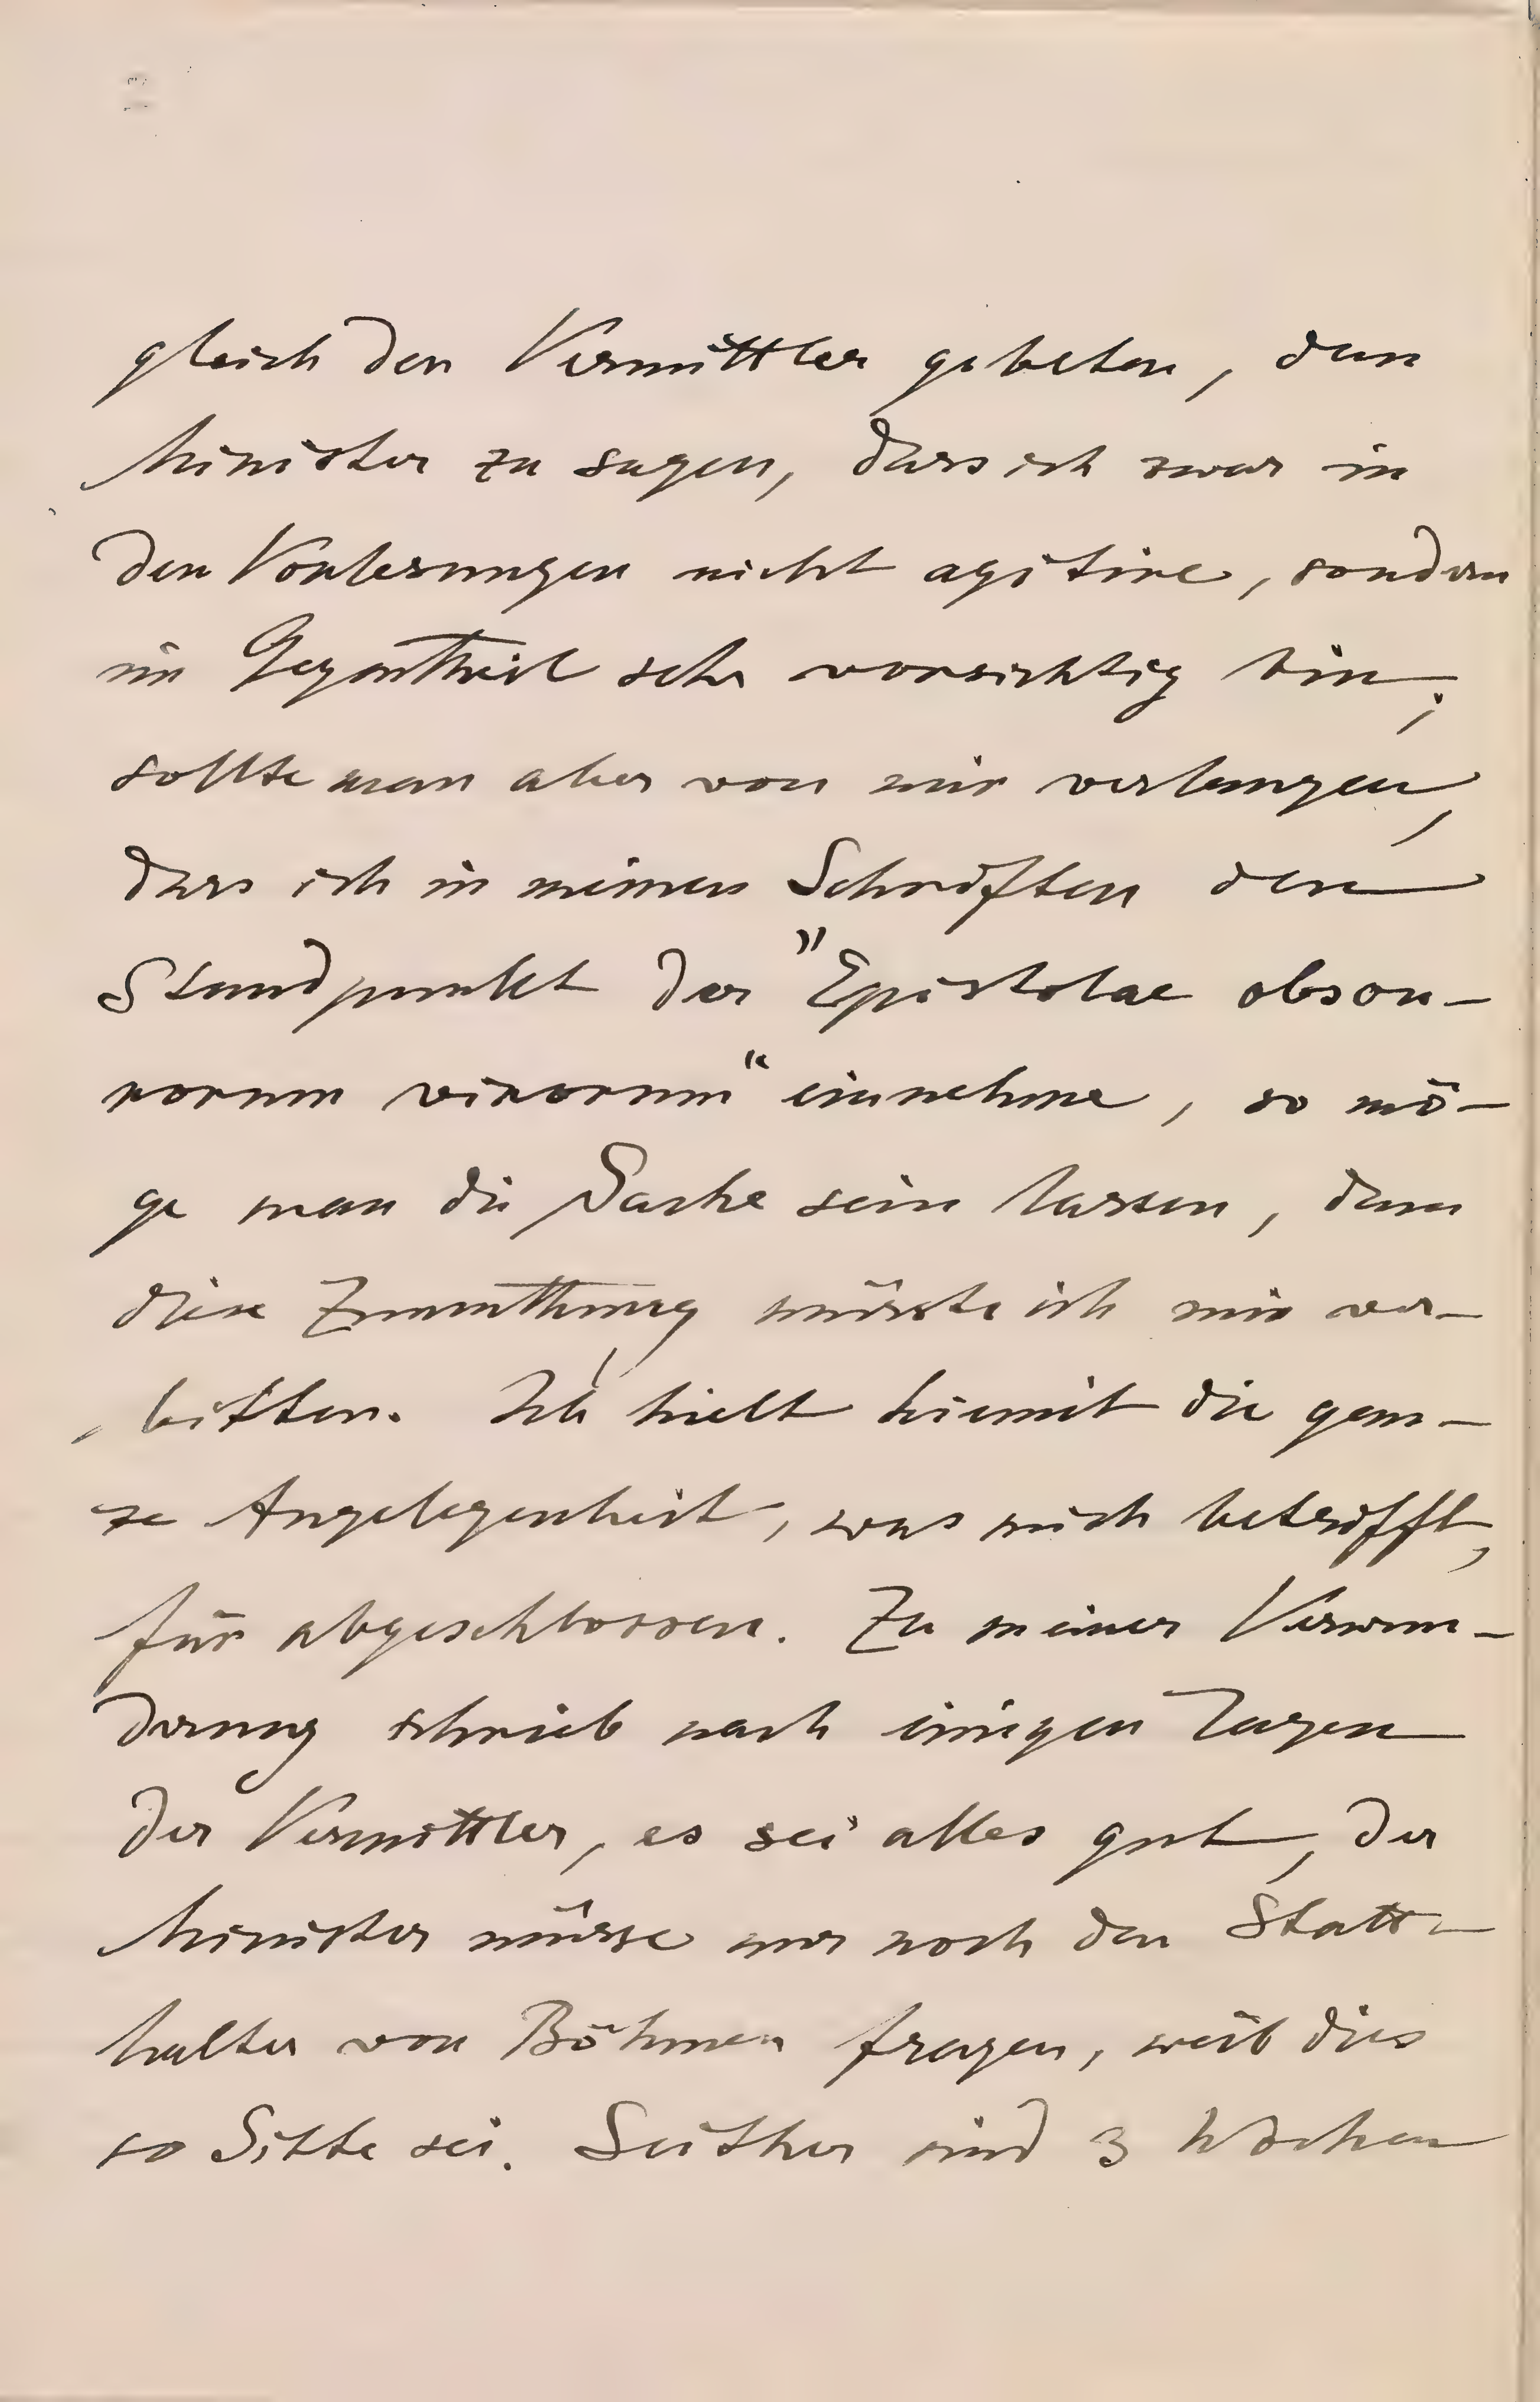 gleich den Vermittler gebeten, dem
Minister zu sagen, dass ich zwar in
den Vorlesungen nicht agitire, sondern
im Gegentheil sehr vorsichtig bin;
sollte man aber von mir verlangen,
dass ich in meinen Schriften den
Standpunkt der "Epistolae obscu-
rorum virorum“ einnehme, so mö-
ge man die Sache sein lassen, denn
diese Zumuthung müsste ich mir ver-
bitten. Ich hielt hiemit die gan-
ze Angelegenheit, was mich betrifft,
für abgeschlossen. Zu meiner Verwun-
derung schrieb nach einigen Tagen
der Vermittler, es sei alles gut, der
Minister müsse nur noch den Statt-
halter von Böhmen fragen, weil dies
so Sitte sei. Seither sind 3 Wochen